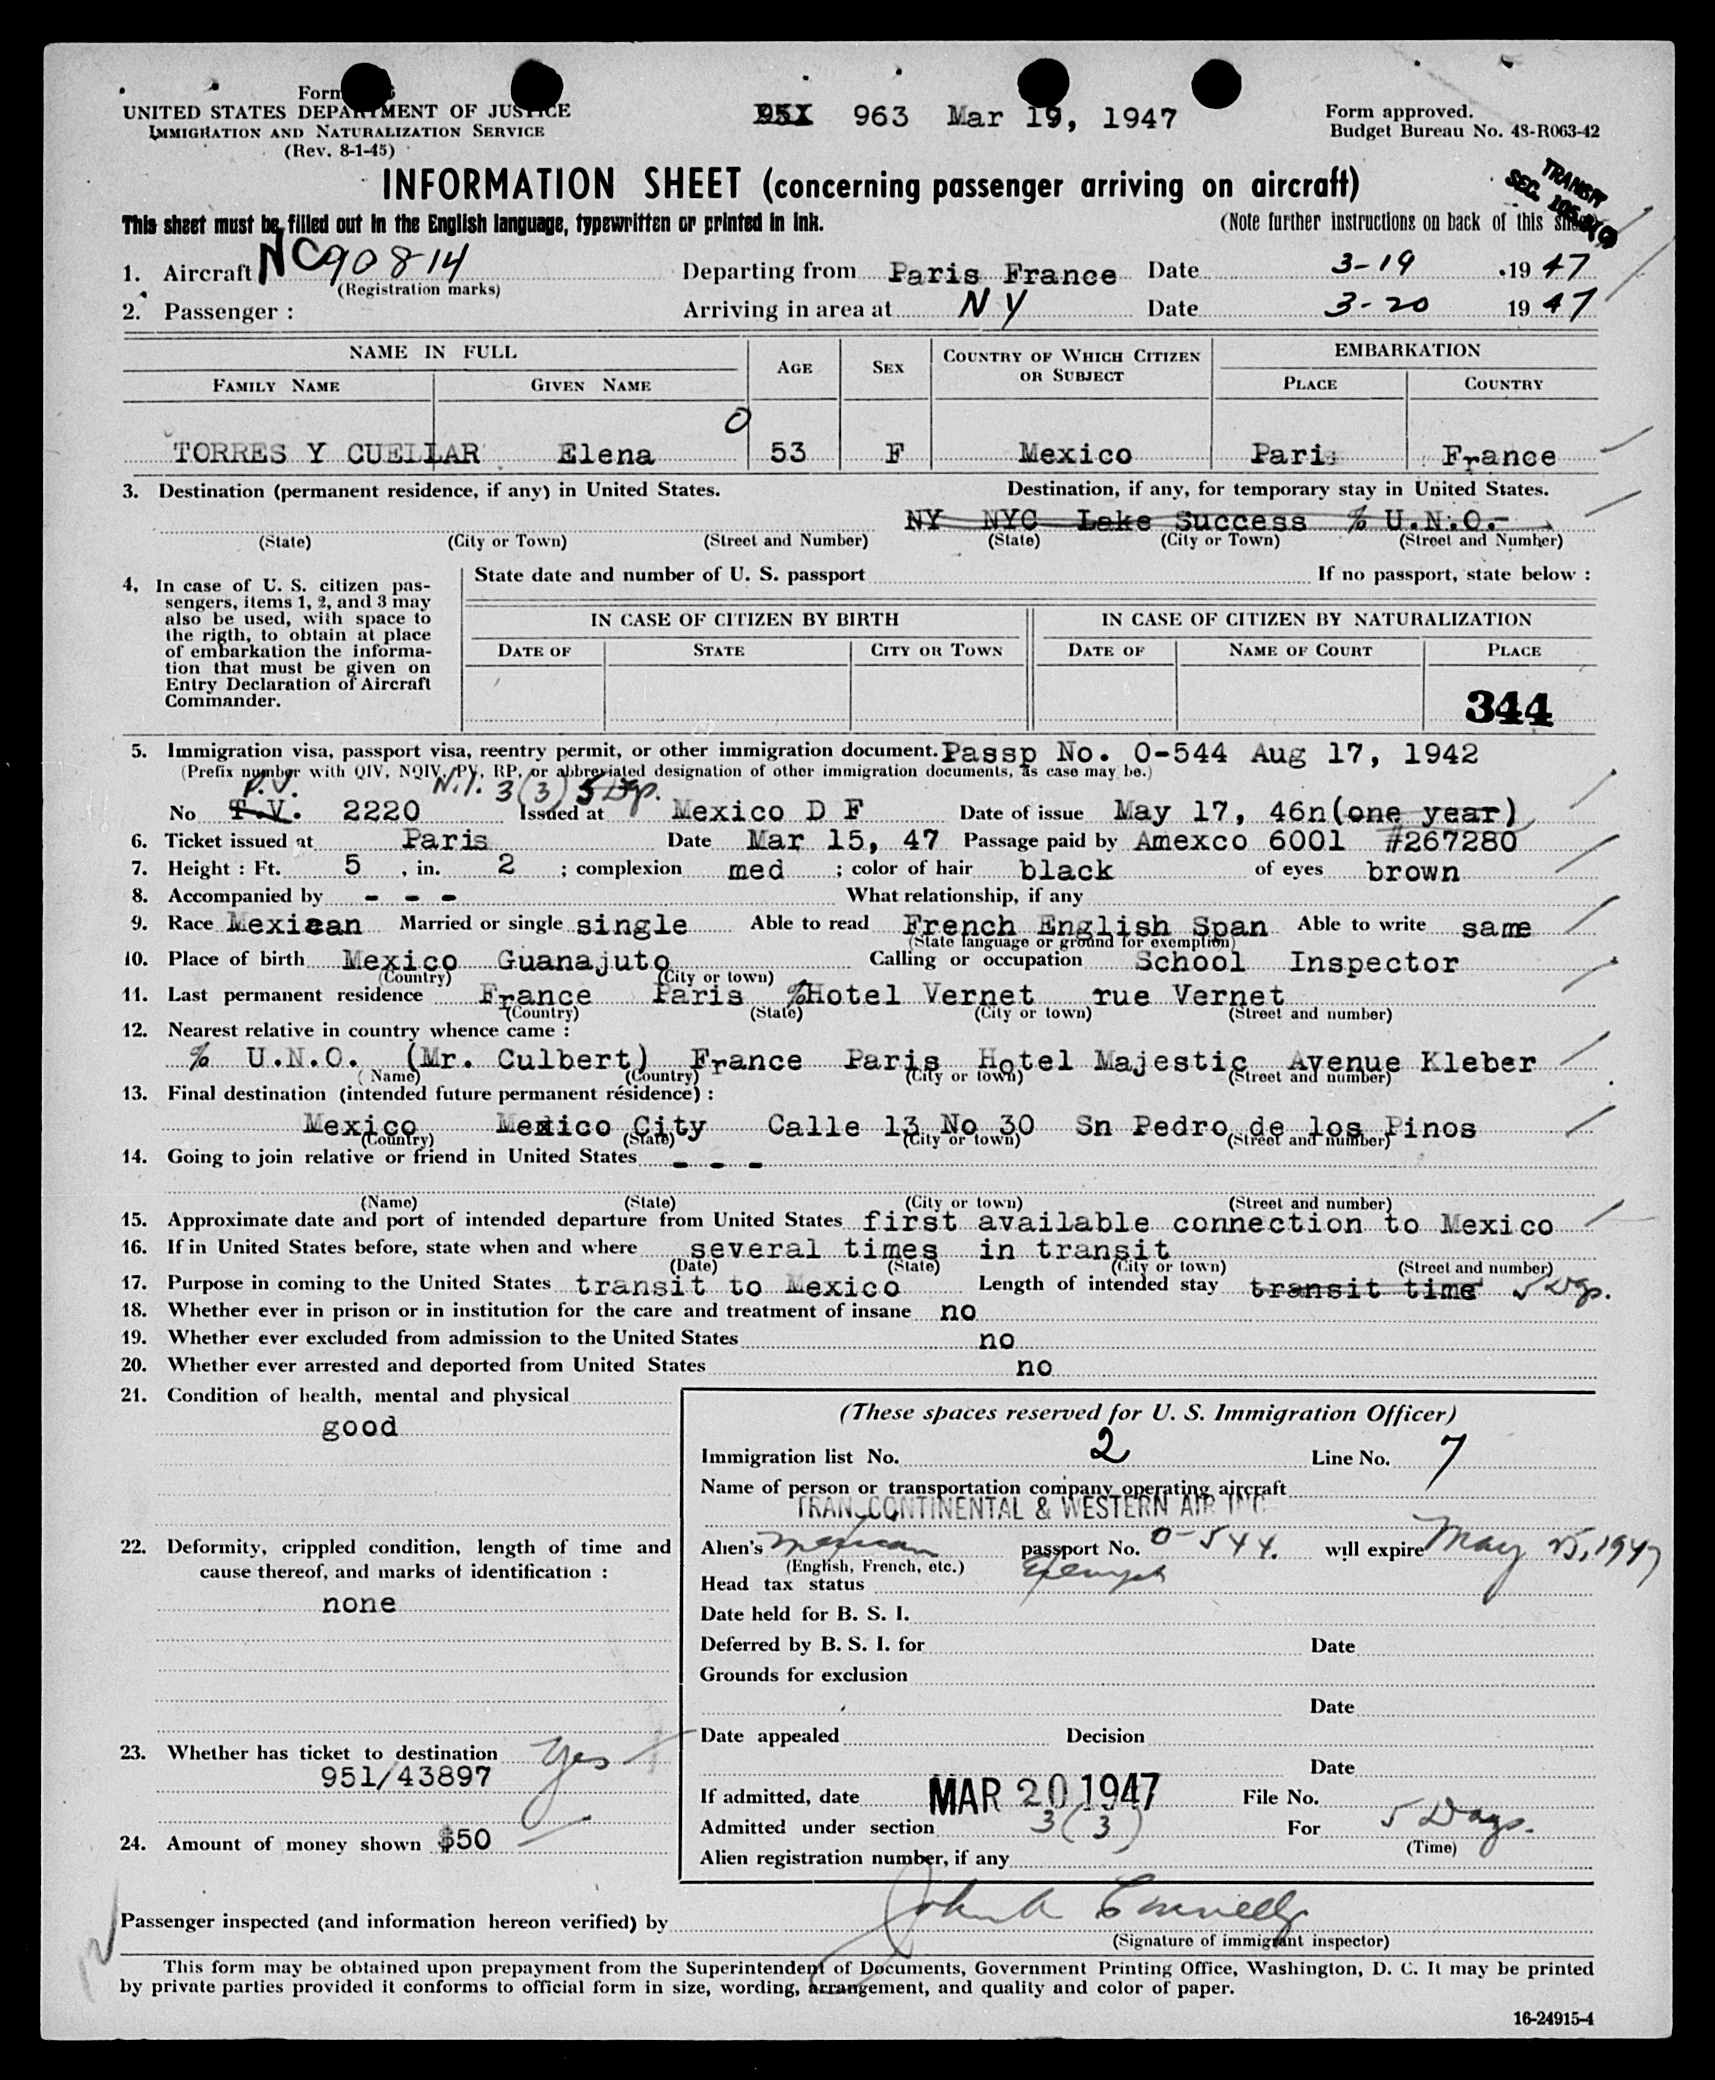 Form
UNITED STATES DEPARTMENT OF JUSTICE
IMMIGRATION AND NATURALIZATION SERVICE
(Rev. 8-1-45)
951 963 Mar 19, 1947
Form approved.
Budget Bureau No. 43-R063-42
INFORMATION SHEET (concerning passenger arriving on aircraft)
TRANSIT
SEC.
This sheet must be filled out in the English language, typewritten or printed in ink. (Note further instructions on back of this sheet)
1. Aircraft NC90814 Departing from Paris France Date 3-19 1947
(Registration marks)
2. Passenger : Arriving in area at NY Date 3-20 1947
NAME IN FULL AGE SEX COUNTRY OF WHICH CITIZEN OR SUBJECT EMBARKATION
FAMILY NAME GIVEN NAME PLACE COUNTRY
0
TORRES Y CUELLAR Elena 53 F Mexico Paris France
3. Destination (permanent residence, if any) in United States. Destination, if any, for temporary stay in United States.
NY NYC Lake Success % U.N.O.-
(State) (City or Town) (Street and Number) (State) (City or Town) (Street and Number)
4. In case of U. S. citizen pas-
sengers, items 1, 2, and 3 may
also be used, with space to
the rigth, to obtain at place
of embarkation the informa-
tion that must be given on
Entry Declaration of Aircraft
Commander.
State date and number of U. S. passport If no passport, state below :
IN CASE OF CITIZEN BY BIRTH IN CASE OF CITIZEN BY NATURALIZATION
DATE OF STATE CITY OR TOWN DATE OF NAME OF COURT PLACE
344
5. Immigration visa, passport visa, reentry permit, or other immigration document. Passp No. O-544 Aug 17, 1942
(Prefix number with QIV, NQIV, PV, RP, or abbreviated designation of other immigration documents, as case may be.)
P.V. N.Y. 3(3) 5 Dys.
No T.V. 2220 Issued at Mexico D F Date of issue May 17, 46n(one year)
6. Ticket issued at Paris Date Mar 15, 47 Passage paid by Amexco 6001 #267280
7. Height : Ft. 5 , in. 2 ; complexion med ; color of hair black of eyes brown
8. Accompanied by - - - What relationship, if any
9. Race Mexican Married or single single Able to read French English Span Able to write same
(State language or ground for exemption)
10. Place of birth Mexico Guanajuto Calling or occupation School Inspector
(Country) (City or town)
11. Last permanent residence France Paris %Hotel Vernet rue Vernet
(Country) (State) (City or town) (Street and number)
12. Nearest relative in country whence came :
% U.N.O. (Mr. Culbert) France Paris Hotel Majestic Avenue Kleber
(Name) (Country) (City or town) (Street and number)
13. Final destination (intended future permanent résidence) :
Mexico Mexico City Calle 13 No 30 Sn Pedro de los Pinos
(Country) (State) (City or town) (Street and number)
14. Going to join relative or friend in United States - - -
(Name) (State) (City or town) (Street and number)
15. Approximate date and port of intended departure from United States first available connection to Mexico
16. If in United States before, state when and where several times in transit
(Date) (State) (City or town) (Street and number)
17. Purpose in coming to the United States transit to Mexico Length of intended stay transit time 5 Dys.
18. Whether ever in prison or in institution for the care and treatment of insane no
19. Whether ever excluded from admission to the United States no
20. Whether ever arrested and deported from United States no
21. Condition of health, mental and physical
good
22. Deformity, crippled condition, length of time and
cause thereof, and marks of identification :
none
23. Whether has ticket to destination yes
951/43897
24. Amount of money shown $50
(These spaces reserved for U. S. Immigration Officer)
Immigration list No. 2 Line No. 7
Name of person or transportation company operating aircraft
TRANSCONTINENTAL & WESTERN AIR INC
Alien's Mexican passport No. O-544. will expire May 25, 1947
(English, French, etc.)
Head tax status Exempt
Date held for B. S. I.
Deferred by B. S. I. for Date
Grounds for exclusion
Date
Date appealed Decision
Date
If admitted, date MAR 20 1947 File No.
Admitted under section 3(3) For 5 Days.
(Time)
Alien registration number, if any
Passenger inspected (and information hereon verified) by John A Connelly
(Signature of immigrant inspector)
This form may be obtained upon prepayment from the Superintendent of Documents, Government Printing Office, Washington, D. C. It may be printed
by private parties provided it conforms to official form in size, wording, arrangement, and quality and color of paper.
16-24915-4